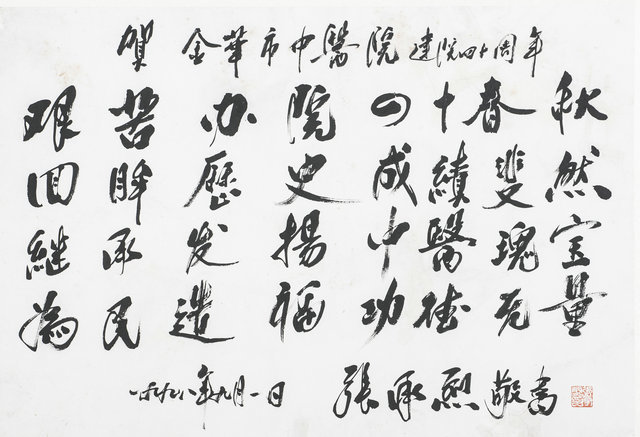 賀 金華市中醫院 建院四十周年
艰苦办院四十春秋
回眸歷史成績斐然
继承发揚中醫瑰宝
為民造福功德无量
一九九八年九月一日 張承烈敬書